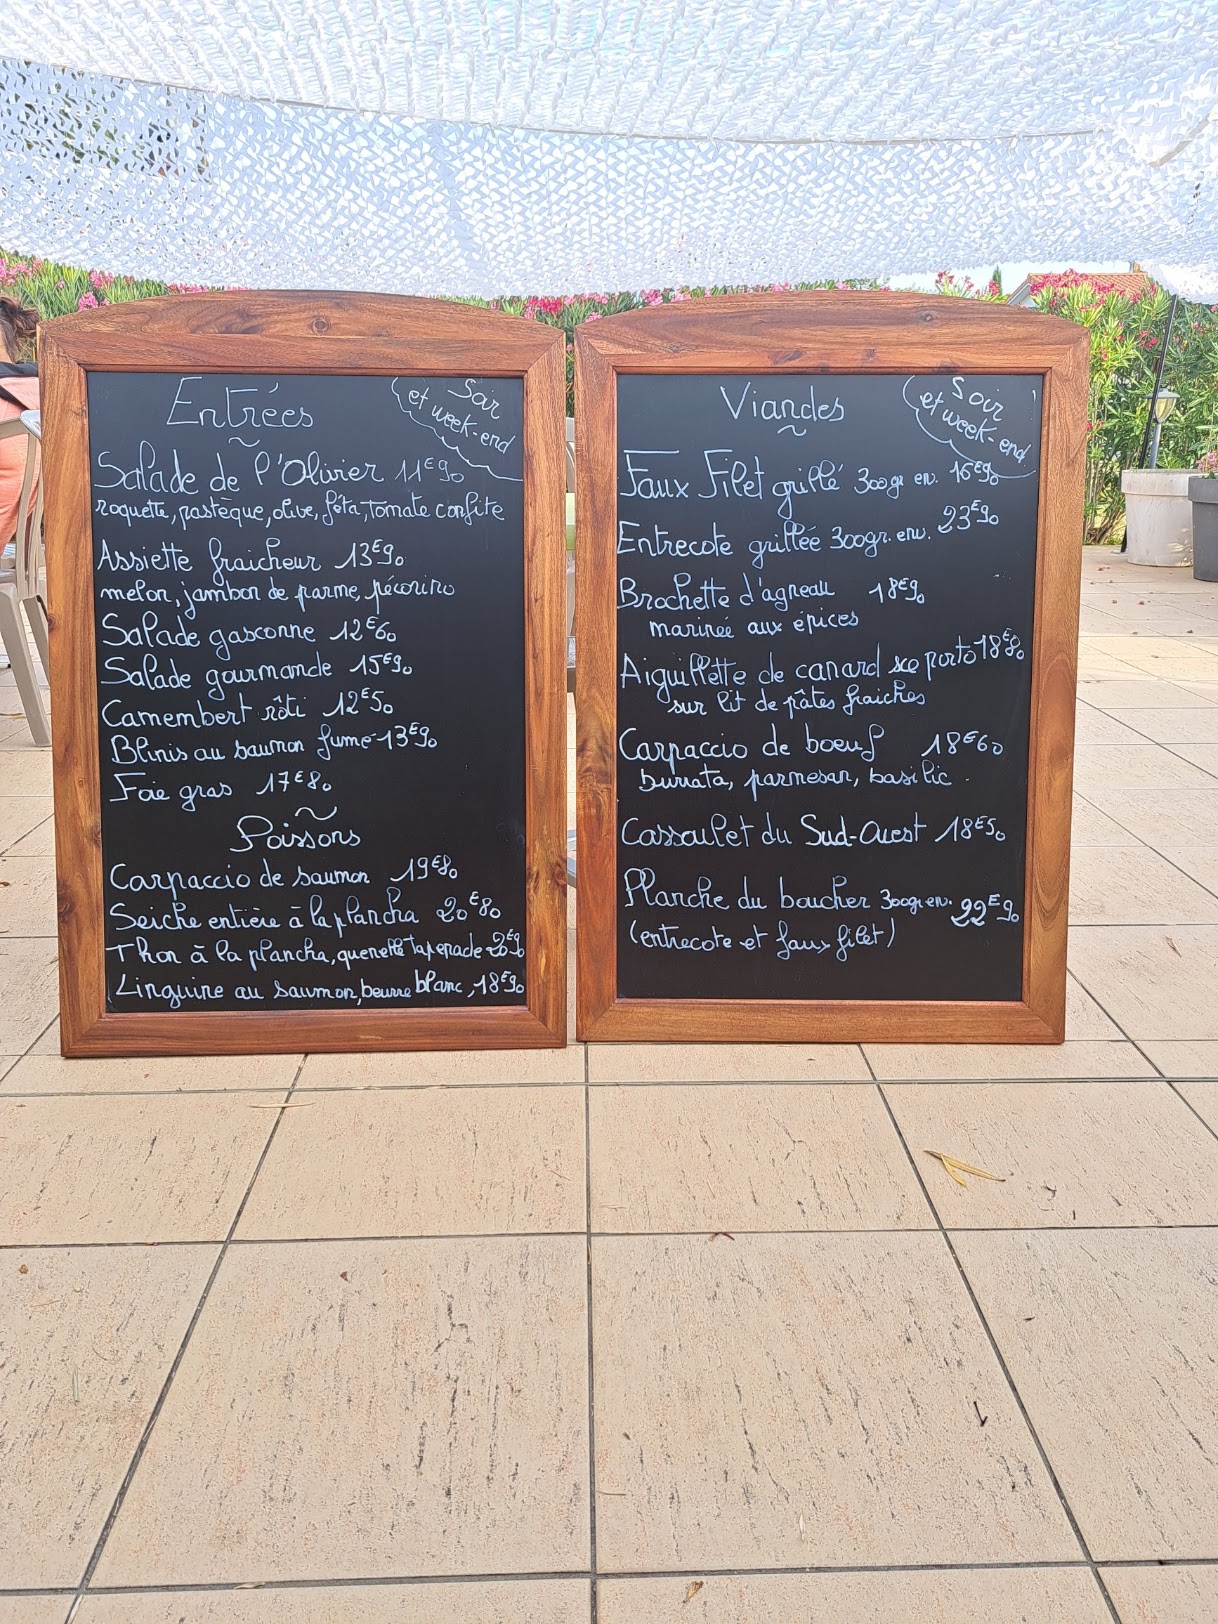 Entrées
Soir
et week-end
Salade de l'Olivier 11€90
roquette, pastèque, olive, féta, tomate confite
Assiette fraicheur 13€90
melon, jambon de parme, pécorino
Salade gasconne 12€60
Salade gourmande 15€90
Camembert rôti 12€50
Blinis au saumon fumé 13€90
Foie gras 17€80
Poissons
Carpaccio de saumon 19€80
Seiche entière à la plancha 20€80
Thon à la plancha, quenelle tapenade 20€90
Linguine au saumon, beurre blanc, 18€90
Viandes
Soir
et week-end
Faux Filet grillé 300gr env. 16€90
Entrecote grillée 300gr. env. 23€90
Brochette d'agneau 18€90
marinée aux épices
Aiguillette de canard sce porto 18€80
sur lit de pâtes fraiches
Carpaccio de boeuf 18€60
burrata, parmesan, basilic.
Cassoulet du Sud-Ouest 18€50
Planche du boucher 300gr env. 22€90
(entrecote et faux filet)